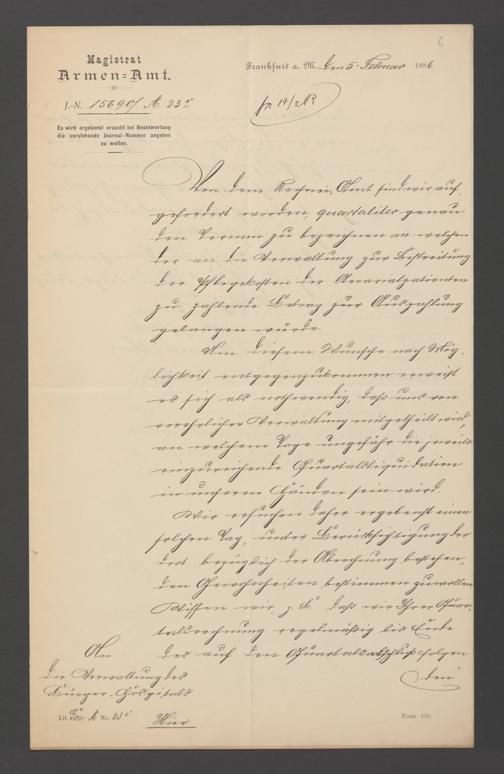 6
Magistrat
Armen-Amt.
Frankfurt a. M., den 5. Februar 1886
J.-N. 15690/ A 23c
pr. 14/2 R
Es wird ergebenst ersucht bei Beantwortung
die vorstehende Journal-Nummer angeben
zu wollen.
Von dem Rechnei-Amt sind wir auf-
gefordert worden, quartaliter genau
den Termin zu bezeichnen an welchem
der an die Verwaltung zur Bestreitung
der Pflegekosten der Aerarialpatienten
zu zahlende Betrag zur Auszahlung
gelangen würde.
Um diesem Wunsche nach Mög-
lichkeit entgegenzukommen erweist
es sich als nothwendig, daß uns von
verehrlicher Verwaltung mitgetheilt wird,
an welchem Tage ungefähr die jeweils
einzureichende Quartalsliquidation
in unseren Händen sein wird.
Wir ersuchen daher ergebenst einen
solchen Tag, unter Berücksichtigung der
dort bezüglich der Abrechnung bestehen-
den Gewohnheiten bestimmen zu wollen.
Wissen wir, z. B. daß wir Ihre Quar-
talsrechnung regelmäßig bis Ende
des auf den Quartalsabschluß folgen-
den
An
die Verwaltung des
Bürger-Hospitals
Hier
Lit. A No. 23c
Form. 199.